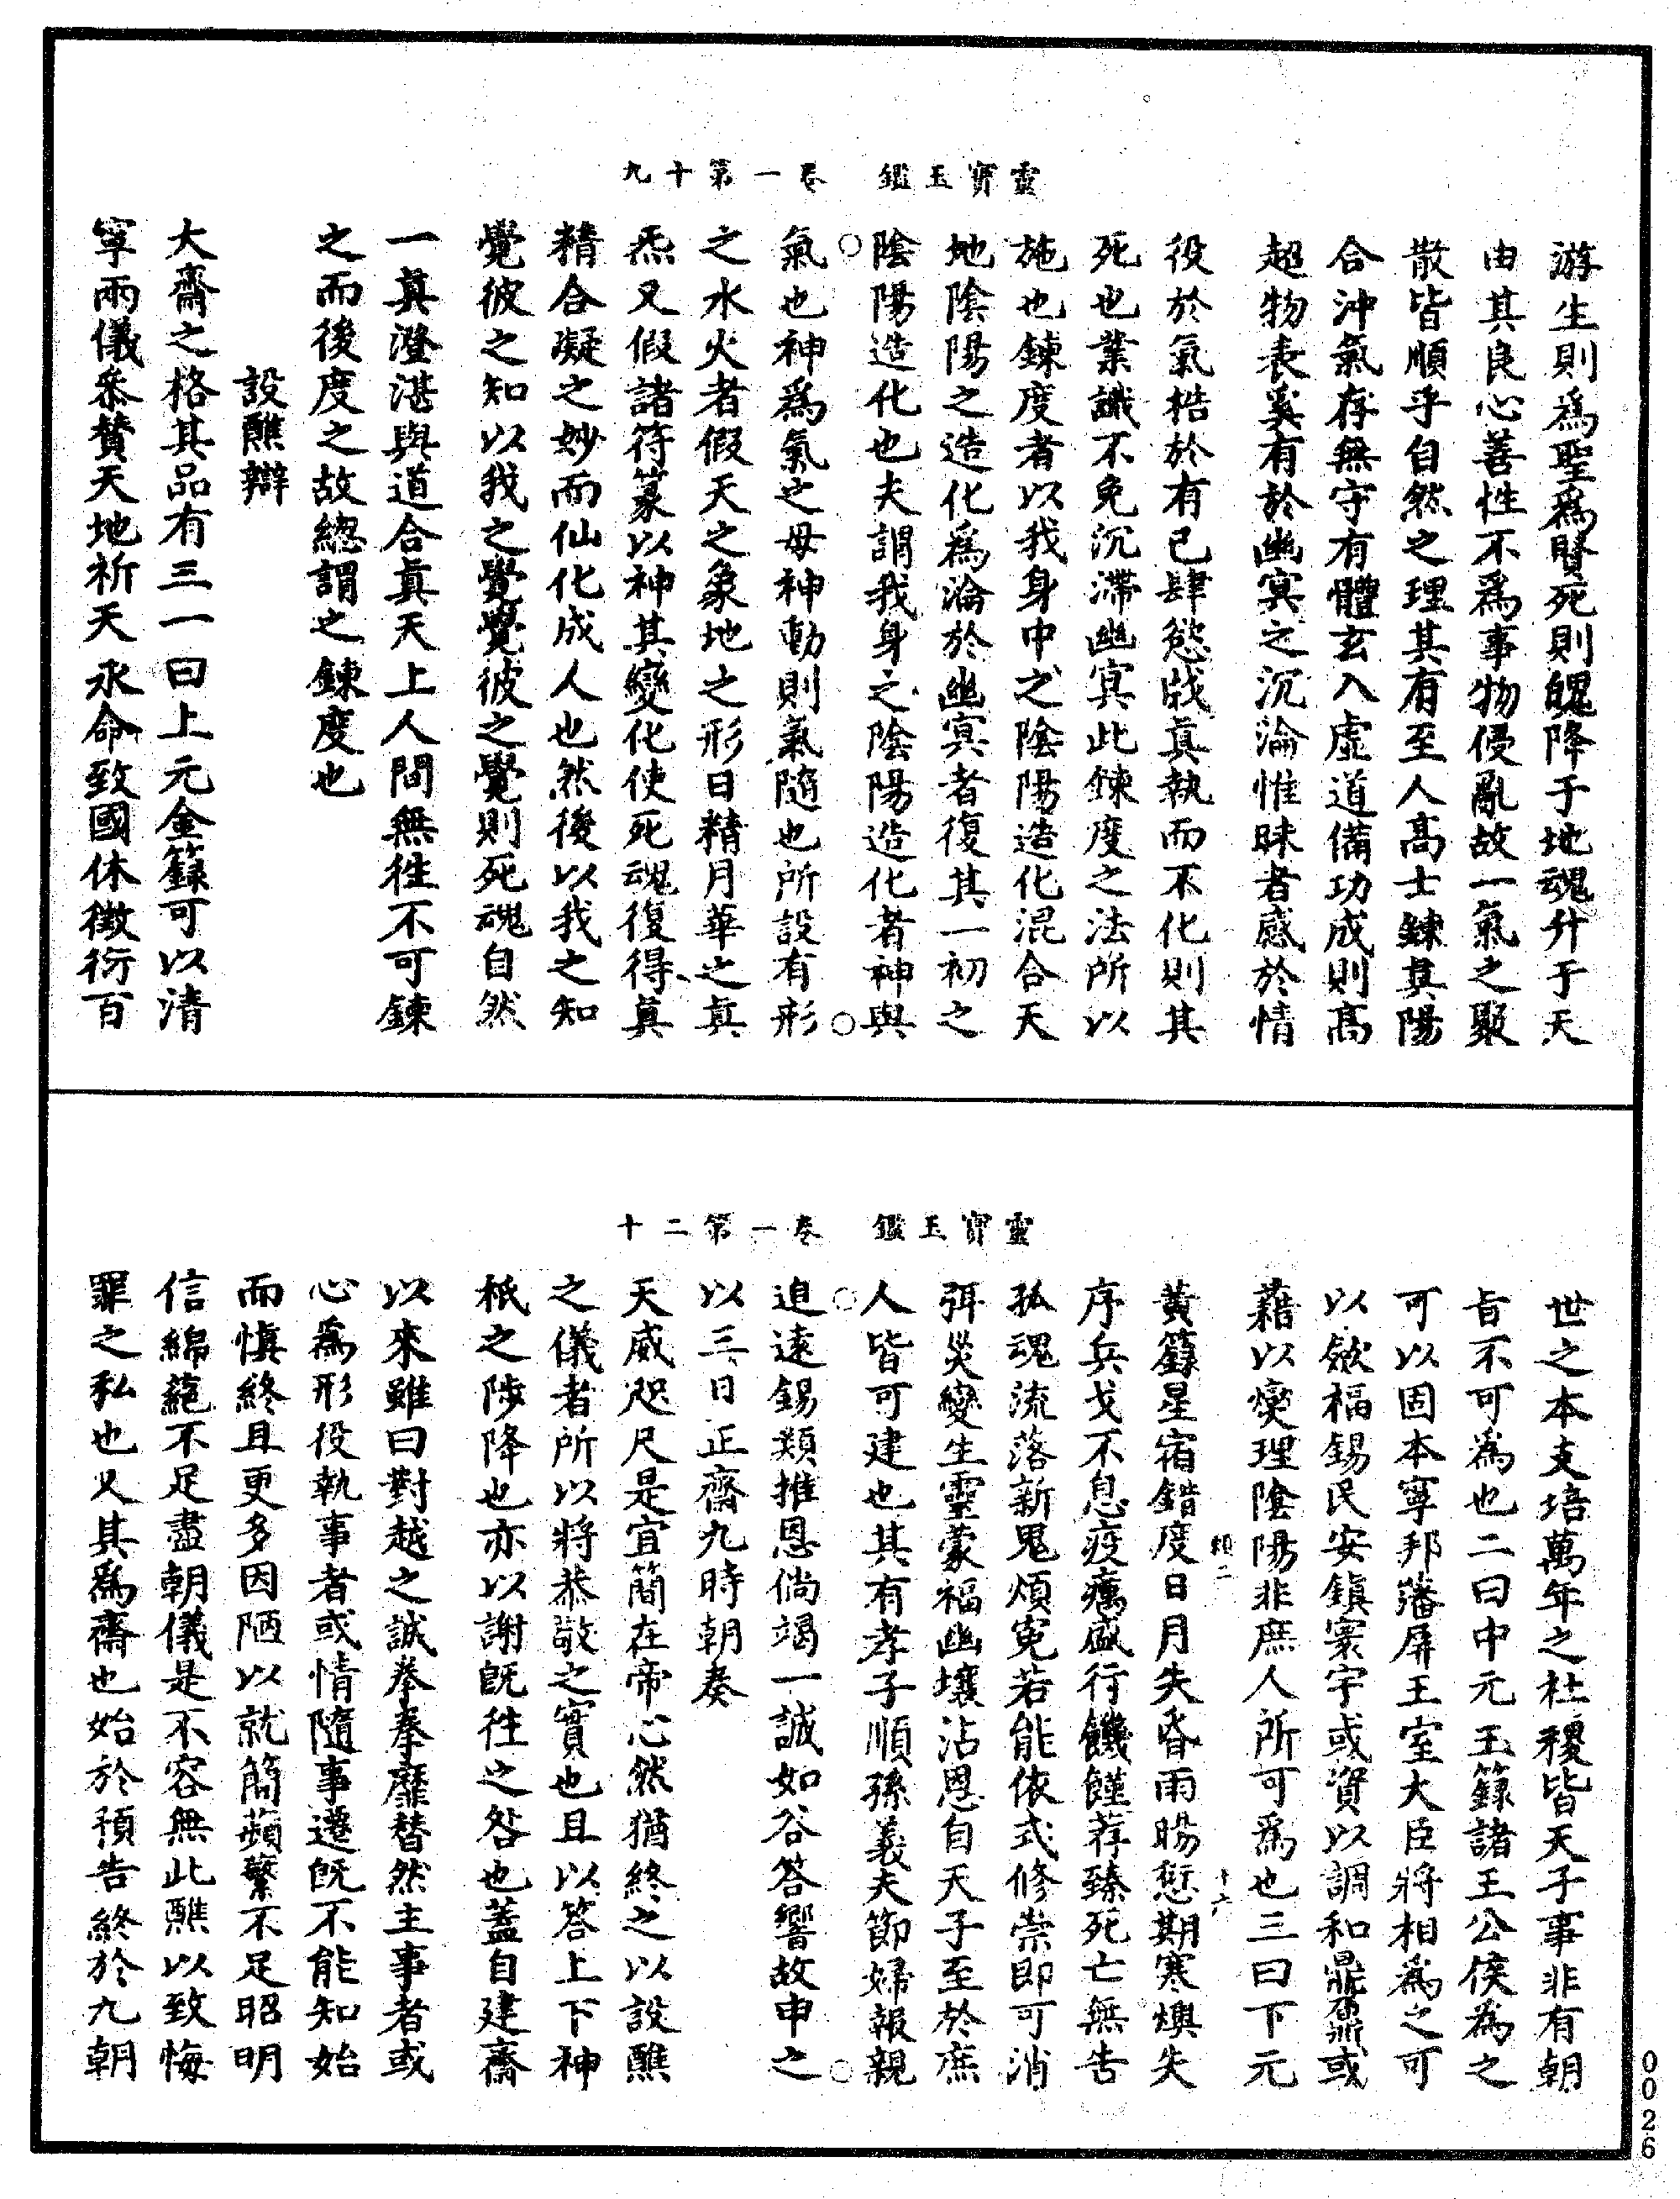 靈寶玉鑑　卷一第十九
游生則爲聖爲賢死則魄降于地魂升于天
由其良心善性不爲事物侵亂故一氣之聚
散皆順乎自然之理其有至人高士鍊其陽
合沖氣存無守有體玄入虛道備功成則高
超物表奚有於幽冥之沉淪惟昧者惑於情
役於氣梏於有己肆慾戕真執而不化則其
死也業識不免沉滯幽冥此鍊度之法所以
施也鍊度者以我身中之陰陽造化混合天
地陰陽之造化爲淪於幽冥者復其一初之
陰陽造化也夫謂我身之陰陽造化者神與
氣也神爲氣之母神動則氣隨也所設有形
之水火者假天之象地之形日精月華之真
炁又假諸符篆以神其變化使死魂復得真
精合凝之妙而仙化成人也然後以我之知
覺彼之知以我之覺覺彼之覺則死魂自然
一真澄湛與道合真天上人間無徃不可鍊
之而後度之故總謂之鍊度也
設醮辯
大齋之格其品有三一曰上元金籙可以清
寧兩儀叅贊天地祈天永命致國休徵衍百
靈寶玉鑑　卷一第二十
世之本支培萬年之社稷皆天子事非有朝
旨不可爲也二曰中元玉籙諸王公侯為之
可以固本寧邦藩屏王室大臣將相爲之可
以斂福錫民安鎮寰宇或資以調和鼎鼐或
藉以燮理陰陽非庶人所可爲也三曰下元
黃籙星宿錯度日月失昏雨暘愆期寒燠失
序兵戈不息疫癘盛行饑饉荐臻死亡無告
孤魂流落新鬼煩寃若能依式修崇即可消
弭災變生靈蒙福幽壤沾恩自天子至於庶
人皆可建也其有孝子順孫義夫節婦報親
追遠錫類推恩倘竭一誠如谷答響故申之
以三日正齋九時朝奏
天威咫尺是宜簡在帝心然猶終之以設醮
之儀者所以將恭敬之實也且以答上下神
祇之陟降也亦以謝旣徃之咎也蓋自建齋
以來雖曰對越之誠拳拳靡替然主事者或
心爲形役執事者或情隨事遷旣不能知始
而慎終且更多因陋以就簡蘋蘩不足昭明
信綿蕝不足盡朝儀是不容無此醮以致悔
罪之私也乂其爲齋也始於預告終於九朝
類二
十六
0026